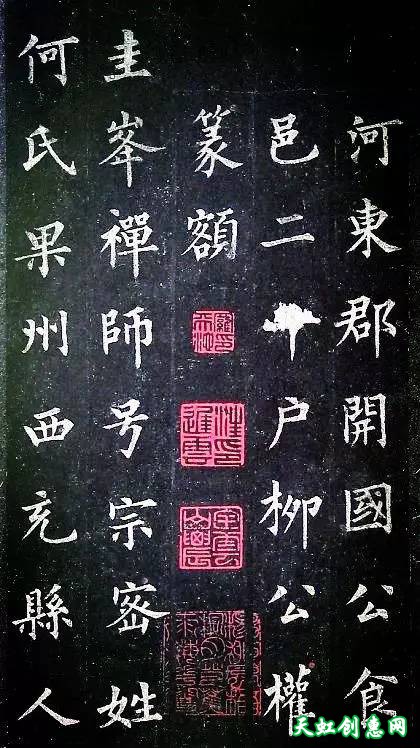 河東郡開國公食
邑二千户柳公權
篆額
圭峯禪師号宗密姓
何氏果州西充縣人
天虹创意网